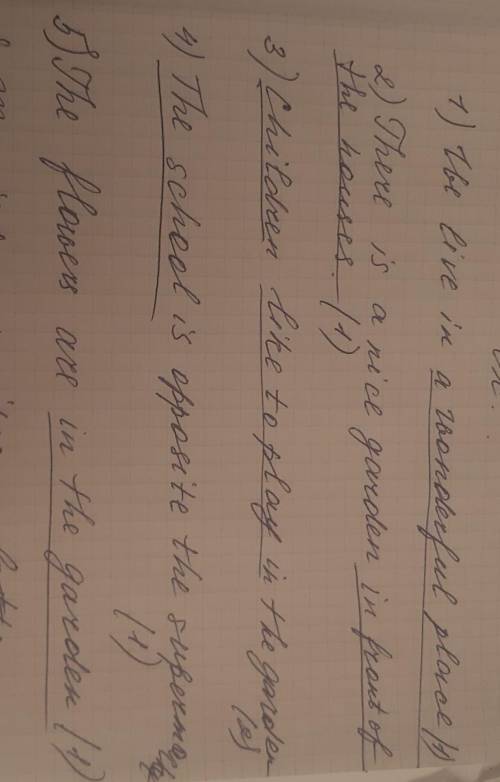 1) We live in a wonderful place (1)
2) There is a nice garden in front of
the houses. (1)
3) Children like to play in the garden
(2)
4) The school is opposite the
(1)
5) The flowers are in the garden (1)